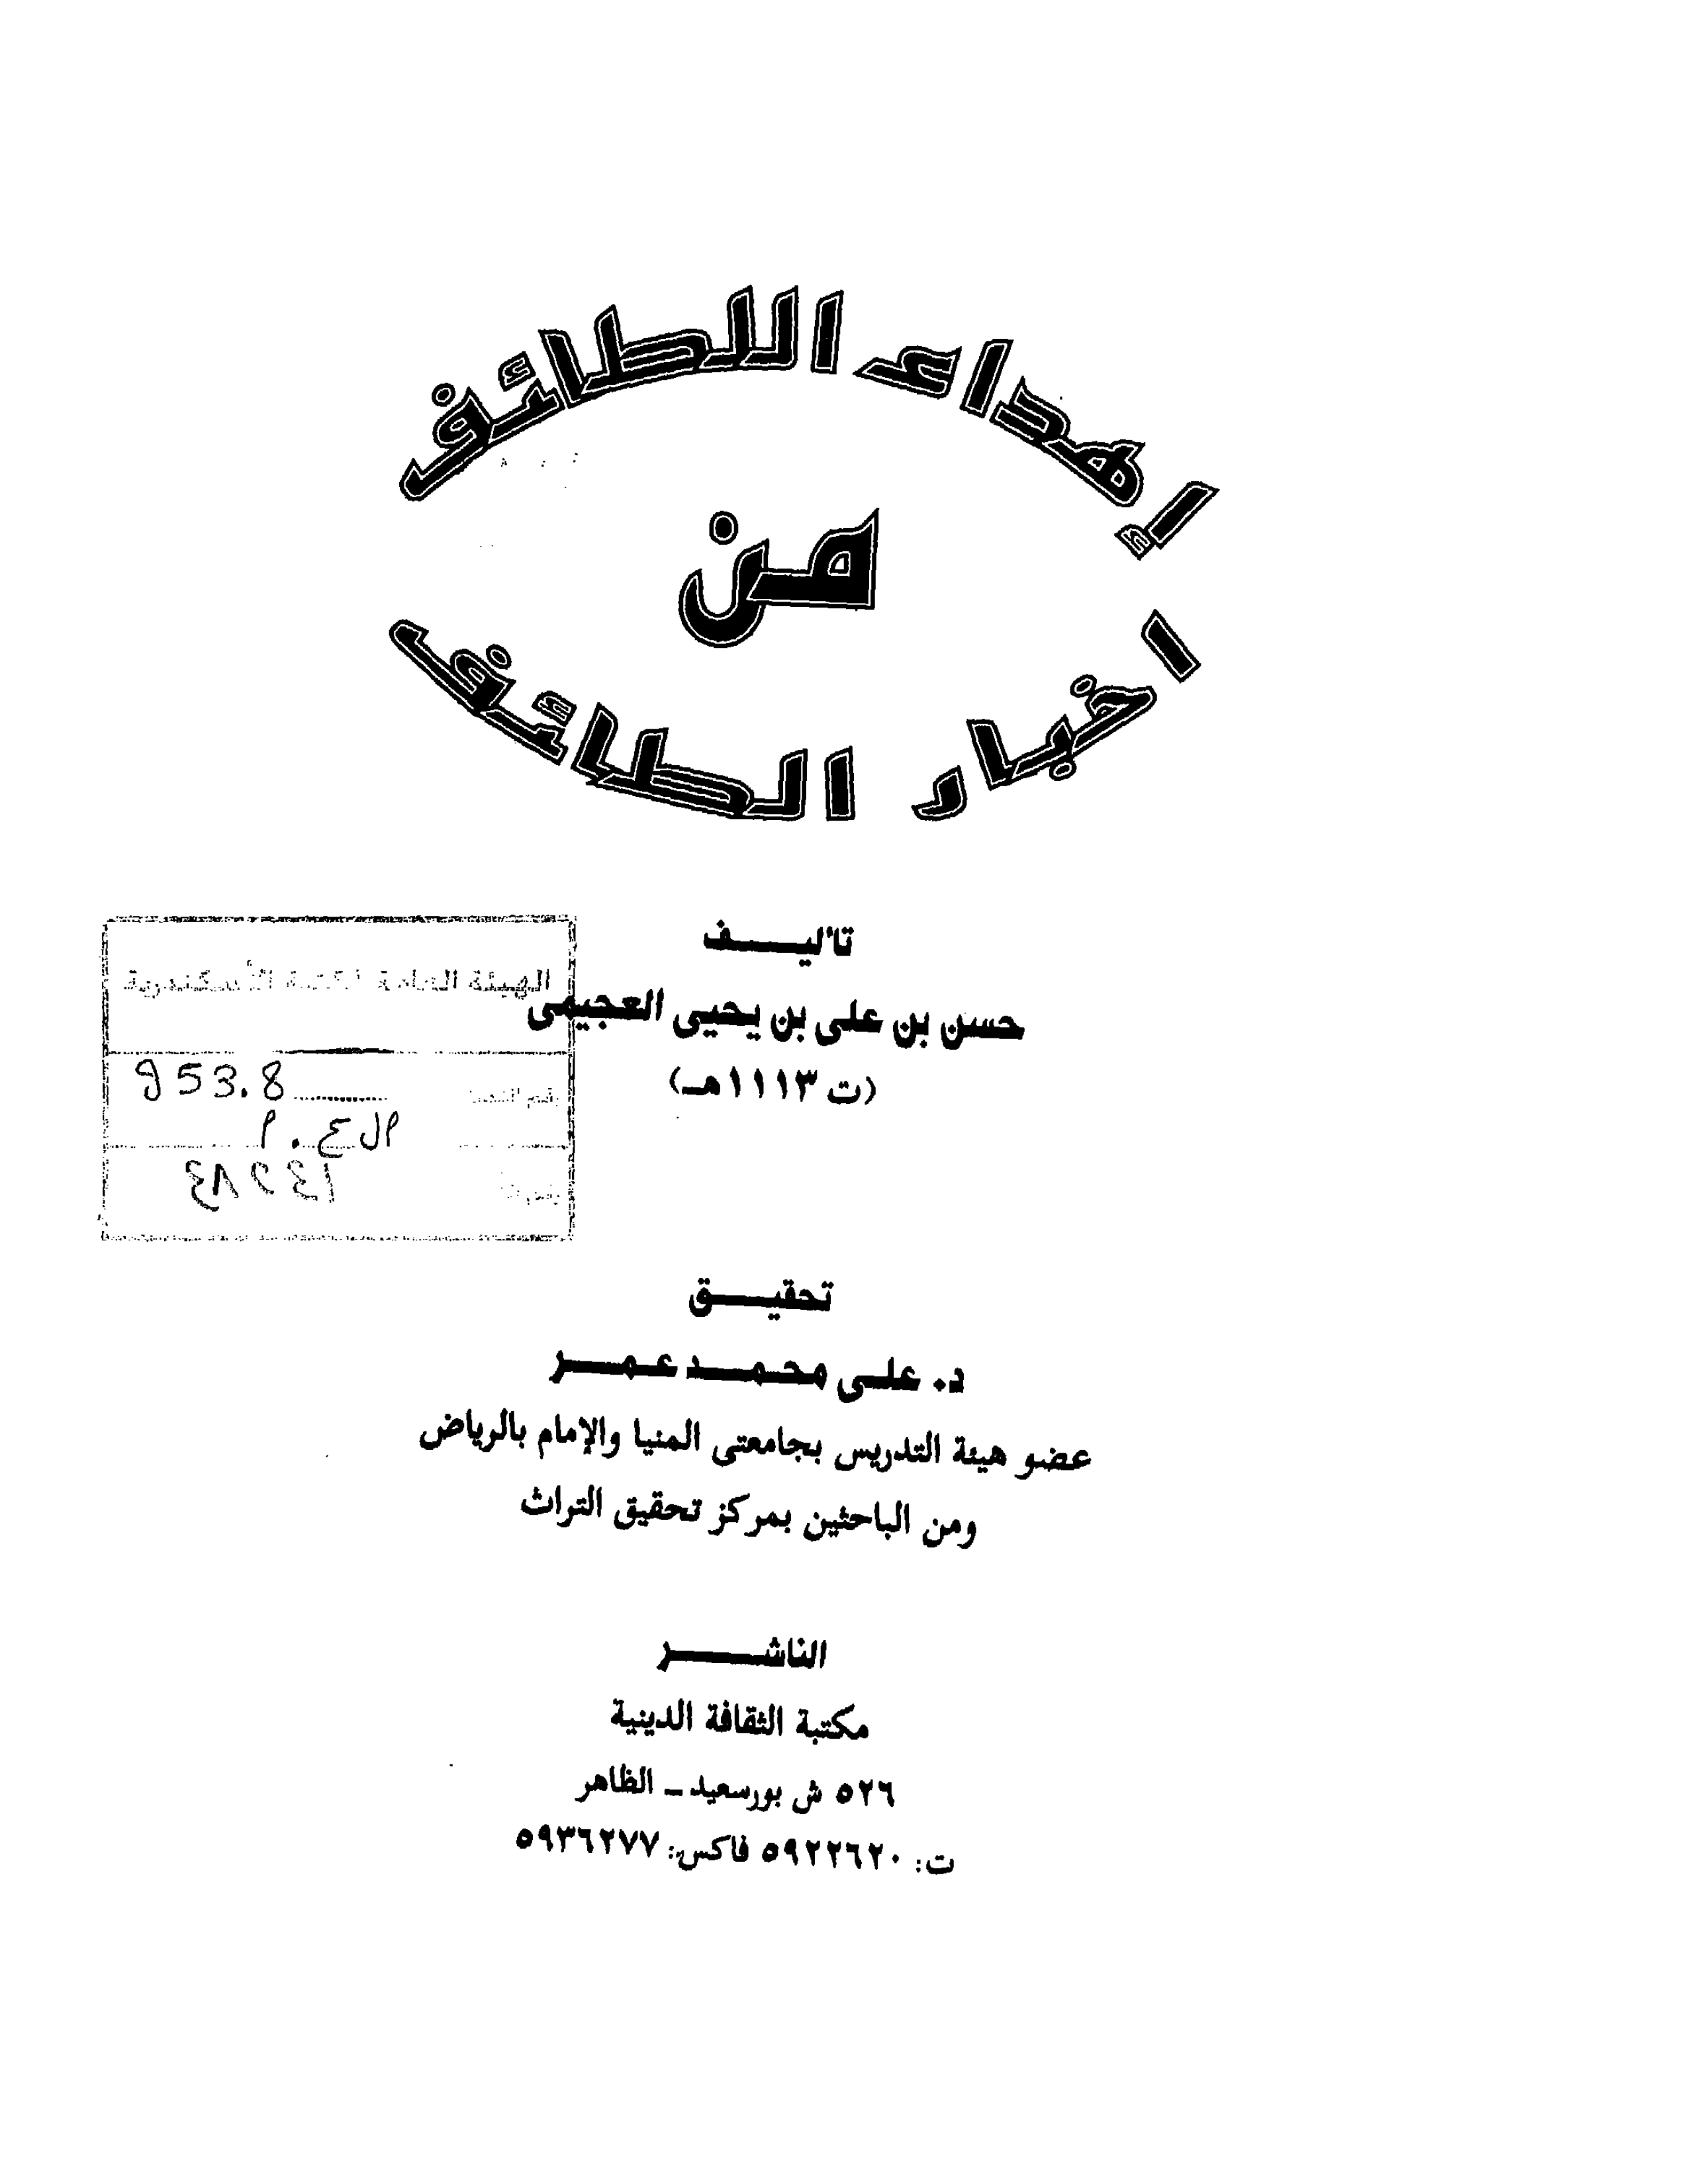 إهداء اللطائف
من
اخبار الطائف
تأليف
حسن بن على بن يحيى العجيمى
(ت ١١١٣هـ)
الهيئة العامة لمكتبة الأسكندرية
953.8
تحقيق
د. على محمد عمر
عضو هيئة التدريس بجامعتى المنيا والإمام بالرياض
ومن الباحثين بمركز تحقيق التراث
الناشر
مكتبة الثقافة الدينية
٥٢٦ ش بورسعيد ـ الظاهر
ت: ٥٩٢٢٦٢٠ فاكس: ٥٩٣٦٢٧٧